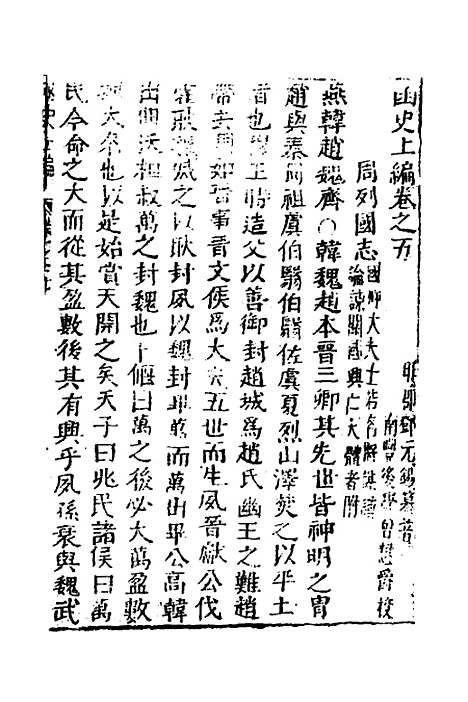 函史上編卷之五
明 鄧元錫纂著
南豐後學曾懋爵校
周列國志國卿大夫士
諫關國興亡大體者附
燕韓趙魏齊○韓魏趙本晉三卿其先世皆神明之胄
趙與秦同祖虞伯翳伯翳佐虞夏烈山澤焚之以平土
者也穆王時造父以善御封趙城爲趙氏幽王之難趙
帶去周如晉事晉文侯爲大夫五世而生夙晉獻公伐
霍耿魏滅之以耿封夙以魏封畢萬而萬出畢公高韓
出唐叔萬之封魏也卜偃曰萬之後必大萬盈數
魏大名也以是始賞天開之矣天子曰兆民諸侯曰萬
民今命之大而從其盈數後其有興乎夙孫衰與魏武